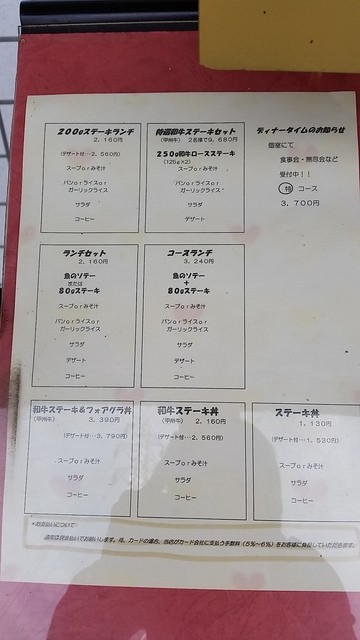 200gステーキランチ
2,160円
(デザート付…2,560円)
スープorみそ汁
パンorライスor
ガーリックライス
サラダ
コーヒー
特選和牛ステーキセット
(甲州牛) 2名様で9,680円
250g和牛ロースステーキ
(125g×2)
スープorみそ汁
パンorライスor
ガーリックライス
サラダ
デザート
ディナータイムのお知らせ
個室にて
食事会・無尽会など
受付中!!
特 コース
3,700円
ランチセット
2,160円
魚のソテー
または
80gステーキ
スープorみそ汁
パンorライスor
ガーリックライス
サラダ
デザート
コーヒー
コースランチ
3,240円
魚のソテー
+
80gステーキ
スープorみそ汁
パンorライスor
ガーリックライス
サラダ
デザート
コーヒー
和牛ステーキ&フォアグラ丼
(甲州牛) 3,390円
(デザート付…3,790円)
スープorみそ汁
サラダ
コーヒー
和牛ステーキ丼
(甲州牛) 2,160円
(デザート付…2,560円)
スープorみそ汁
サラダ
コーヒー
ステーキ丼
1,130円
(デザート付…1,530円)
スープorみそ汁
サラダ
コーヒー
*お支払いについて
通常は現金払いでお願いします。尚、カードの場合、当店がカード会社に支払う手数料(5%~6%)をお客様に負担していただきます。